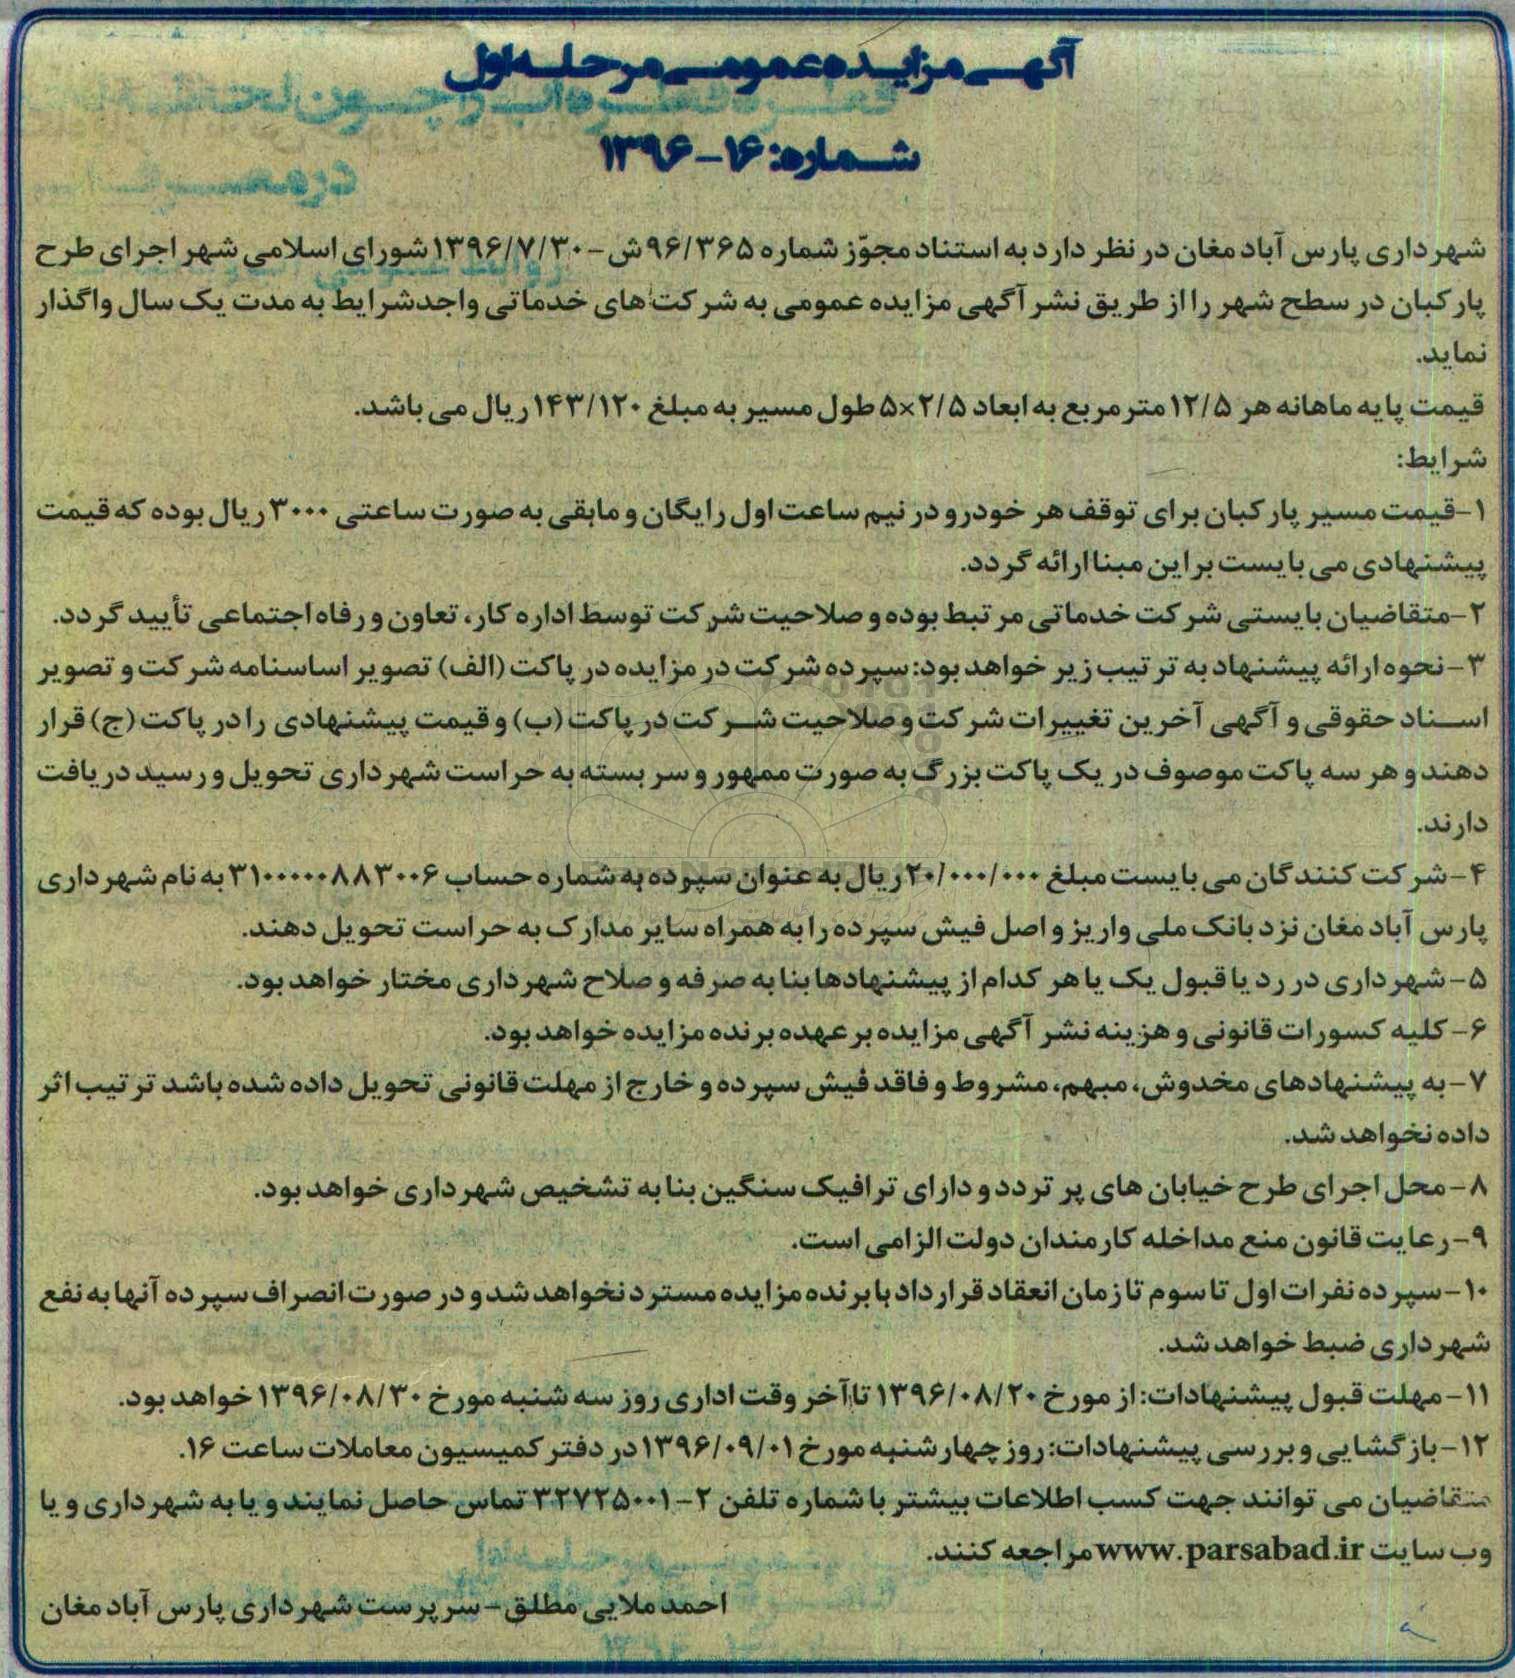 آگهی مزایده عمومی مرحله اول
شماره: ۱۶-۱۳۹۶
شهرداری پارس آباد مغان در نظر دارد به استناد مجوّز شماره ۹۶/۳۶۵ش-۱۳۹۶/۷/۳۰ شورای اسلامی شهر اجرای طرح
پارکبان در سطح شهر را از طریق نشر آگهی مزایده عمومی به شرکت های خدماتی واجدشرایط به مدت یک سال واگذار
نماید.
قیمت پایه ماهانه هر ۱۲/۵ مترمربع به ابعاد ۲/۵×۵ طول مسیر به مبلغ ۱۴۳/۱۲۰ ریال می باشد.
شرایط:
۱-قیمت مسیر پارکبان برای توقف هر خودرو در نیم ساعت اول رایگان و مابقی به صورت ساعتی ۳۰۰۰ ریال بوده که قیمت
پیشنهادی می بایست براین مبنا ارائه گردد.
۲-متقاضیان بایستی شرکت خدماتی مرتبط بوده و صلاحیت شرکت توسط اداره کار، تعاون و رفاه اجتماعی تأیید گردد.
۳-نحوه ارائه پیشنهاد به ترتیب زیر خواهد بود: سپرده شرکت در مزایده در پاکت (الف) تصویر اساسنامه شرکت و تصویر
اسناد حقوقی و آگهی آخرین تغییرات شرکت و صلاحیت شرکت در پاکت (ب) و قیمت پیشنهادی را در پاکت (ج) قرار
دهند و هر سه پاکت موصوف در یک پاکت بزرگ به صورت ممهور و سر بسته به حراست شهرداری تحویل و رسید دریافت
دارند.
۴-شرکت کنندگان می بایست مبلغ ۲۰/۰۰۰/۰۰۰ ریال به عنوان سپرده به شماره حساب ۳۱۰۰۰۰۰۸۸۳۰۰۶ به نام شهرداری
پارس آباد مغان نزد بانک ملی واریز و اصل فیش سپرده را به همراه سایر مدارک به حراست تحویل دهند.
۵-شهرداری در رد یا قبول یک یا هر کدام از پیشنهادها بنا به صرفه و صلاح شهرداری مختار خواهد بود.
۶-کلیه کسورات قانونی و هزینه نشر آگهی مزایده بر عهده برنده مزایده خواهد بود.
۷-به پیشنهادهای مخدوش، مبهم، مشروط و فاقد فیش سپرده و خارج از مهلت قانونی تحویل داده شده باشد ترتیب اثر
داده نخواهد شد.
۸-محل اجرای طرح خیابان های پر تردد و دارای ترافیک سنگین بنا به تشخیص شهرداری خواهد بود.
۹-رعایت قانون منع مداخله کارمندان دولت الزامی است.
۱۰-سپرده نفرات اول تا سوم تا زمان انعقاد قرارداد با برنده مزایده مسترد نخواهد شد و در صورت انصراف سپرده آنها به نفع
شهرداری ضبط خواهد شد.
۱۱-مهلت قبول پیشنهادات: از مورخ ۱۳۹۶/۰۸/۲۰ تا آخر وقت اداری روز سه شنبه مورخ ۱۳۹۶/۰۸/۳۰ خواهد بود.
۱۲-بازگشایی و بررسی پیشنهادات: روز چهارشنبه مورخ ۱۳۹۶/۰۹/۰۱ در دفتر کمیسیون معاملات ساعت ۱۶.
متقاضیان می توانند جهت کسب اطلاعات بیشتر با شماره تلفن ۲-۳۲۷۲۵۰۰۱ تماس حاصل نمایند و یا به شهرداری و یا
وب سایت www.parsabad.ir مراجعه کنند.
احمد ملایی مطلق-سرپرست شهرداری پارس آباد مغان